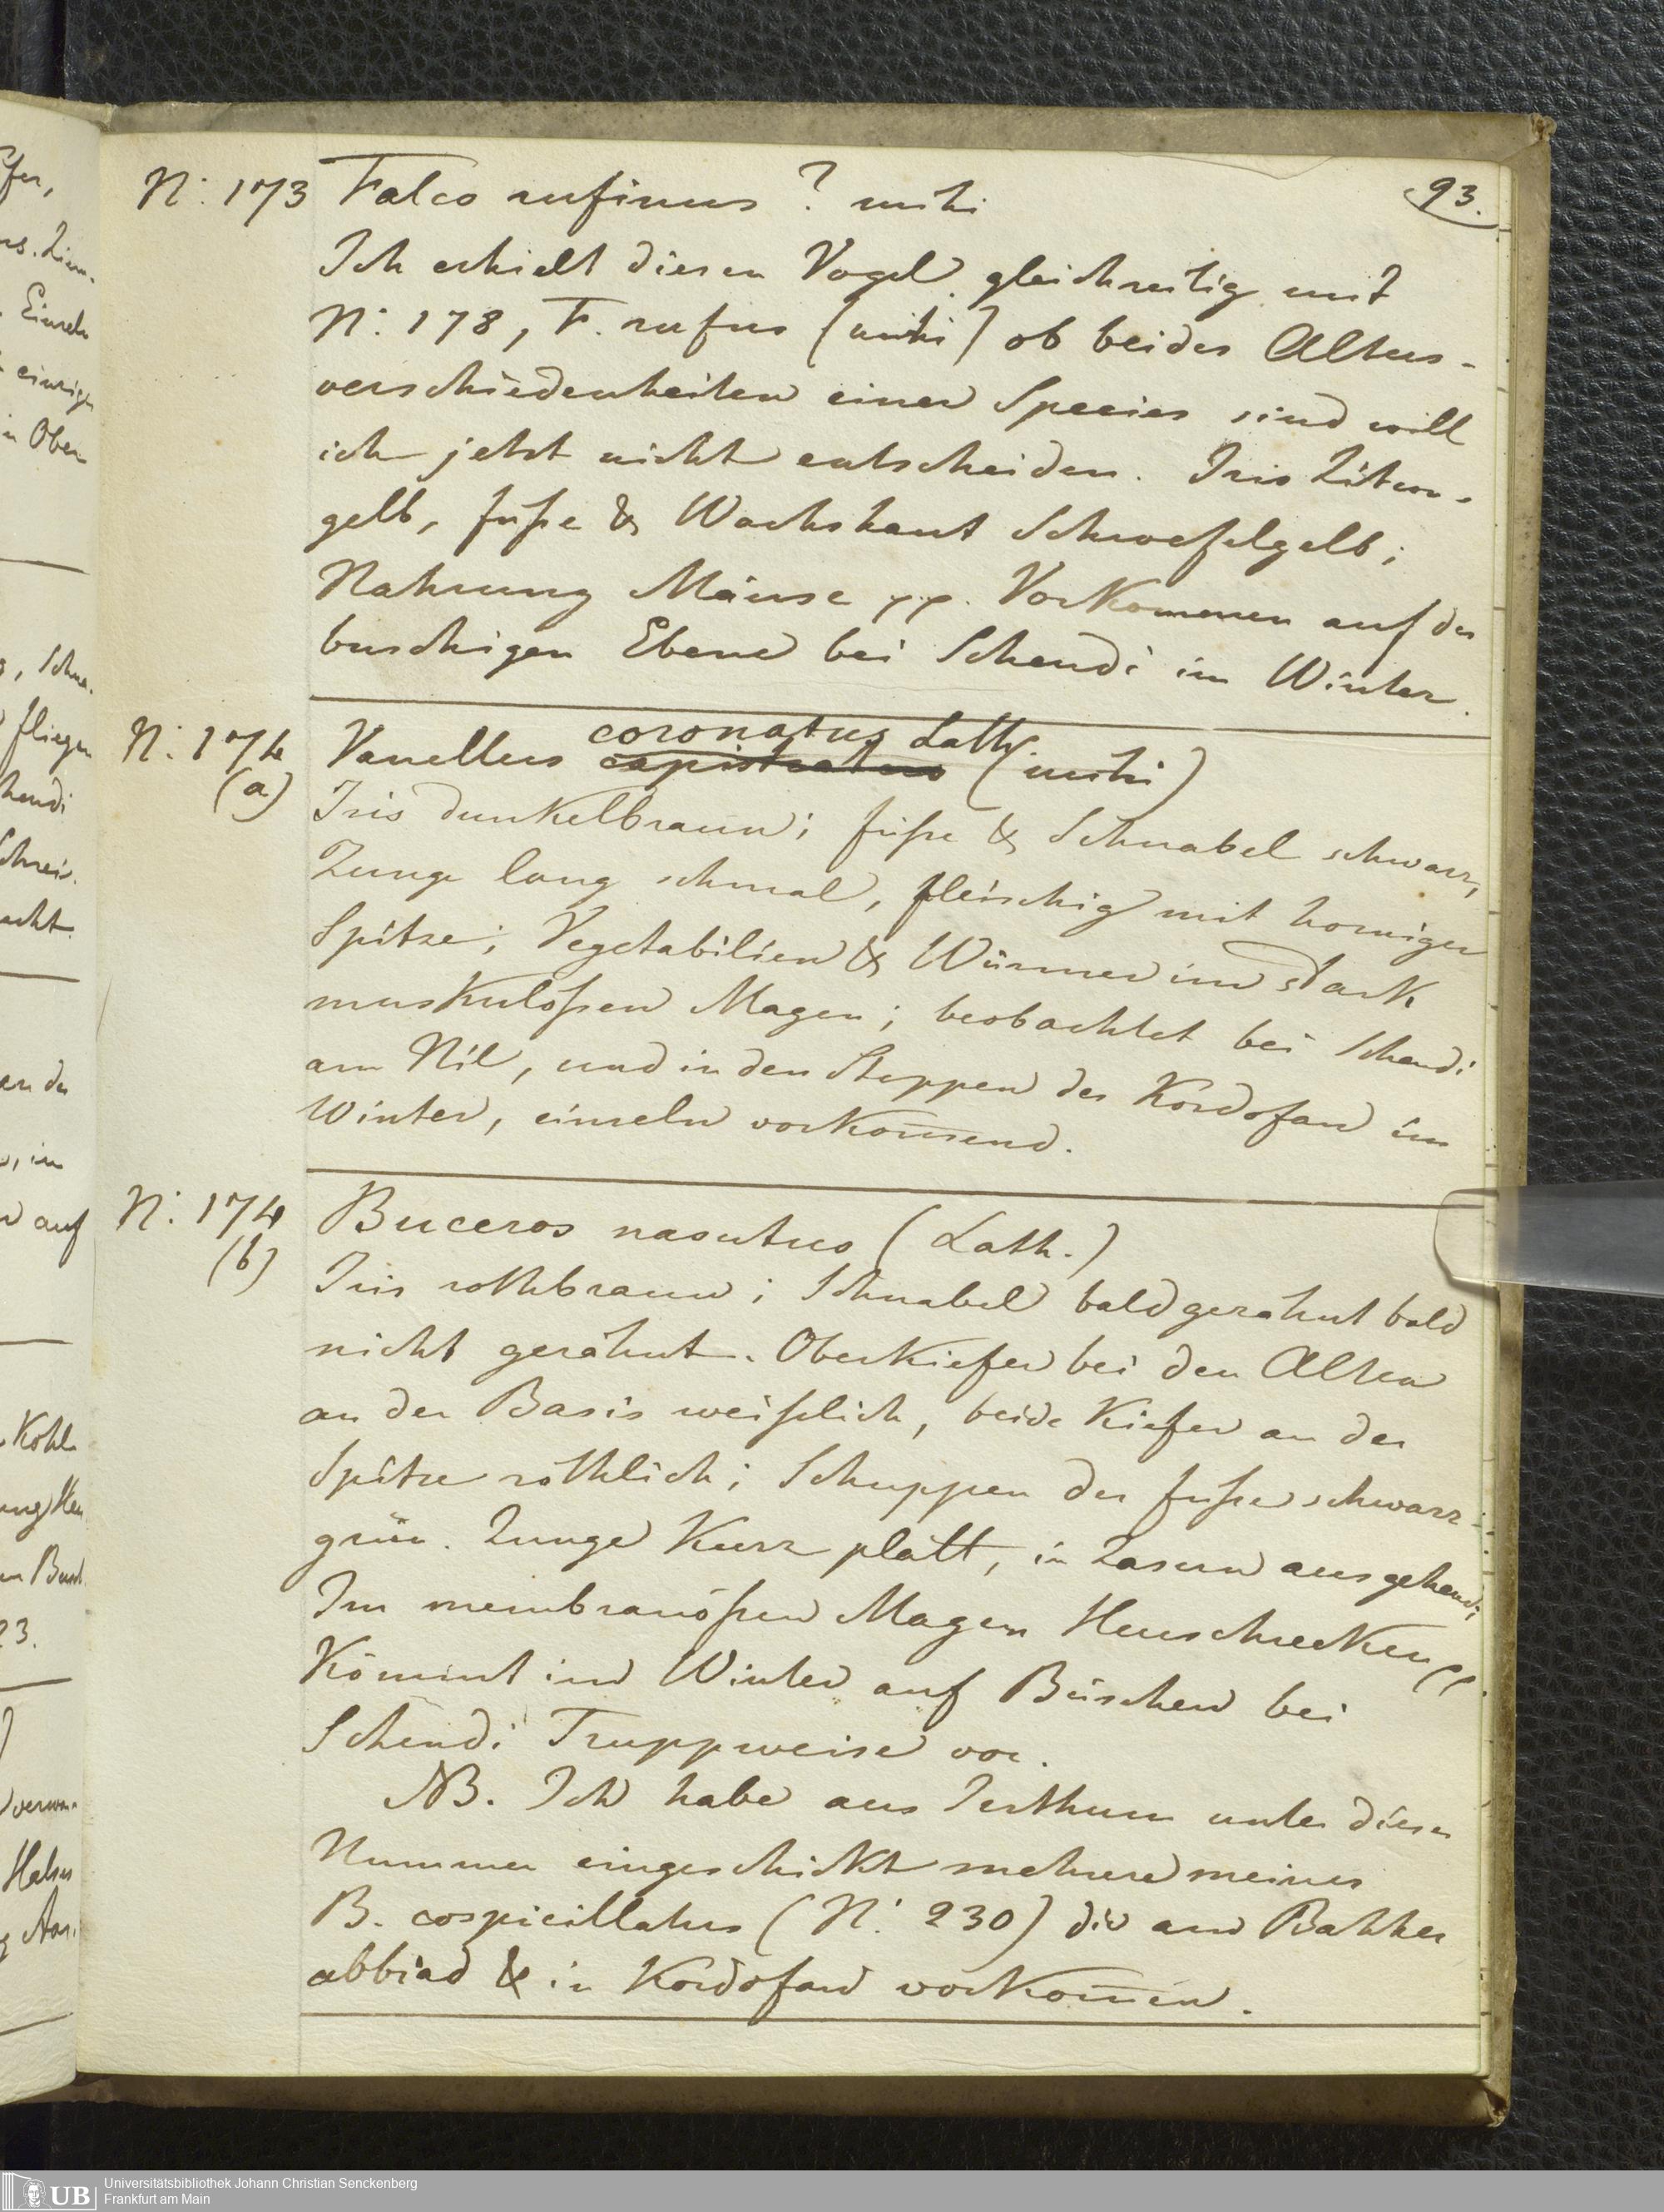 93.
N: 173 Falco rufinus ? mihi
Ich erhielt diesen Vogel gleichzeitig mit
N: 178, F. rufus (mihi) ob beides Alters-
verschiedenheiten einer Species sind will
ich jetzt nicht entscheiden. Iris Zitron-
gelb, fuße & Wachshaut Schwefelgelb;
Nahrung Mäuse pp. Vorkommen auf der
buschigen Ebene bei Schendi im Winter.
N: 174 (a) Vanellus capistratus coronatus Lath. (mihi)
Iris dunkelbraun; füße & Schnabel schwarz,
Zunge lang schmal, fleischig mit horniger
Spitze; Vegetabilien & Würmer im stark
muskulößen Magen; beobachtet bei Schendi
am Nil, und in den Steppen des Kordofan im
Winter, einzeln vorkommend.
N: 174 (b) Buceros nasutus (Lath.)
Iris rothbraun; Schnabel bald gezähnt bald
nicht gezähnt. Oberkiefer bei den Alten
an der Basis weißlich, beide Kiefer an der
Spitze röthlich; Schuppen der fuße schwarz-
grün. Zunge Kurz platt, in Zasern ausgehend;
Im membranößen Magen Heuschrecken pp.
Kömmt im Winter auf Büschen bei
Schendi Truppweise vor.
NB. Ich habe aus Irrthum unter dieser
Nummer eingeschickt mehrere meines
B. cospicillatus (N: 230) die am Bahher
abbiad & in Kordofan vorkommen.
UB Universitätsbibliothek Johann Christian Senckenberg
Frankfurt am Main